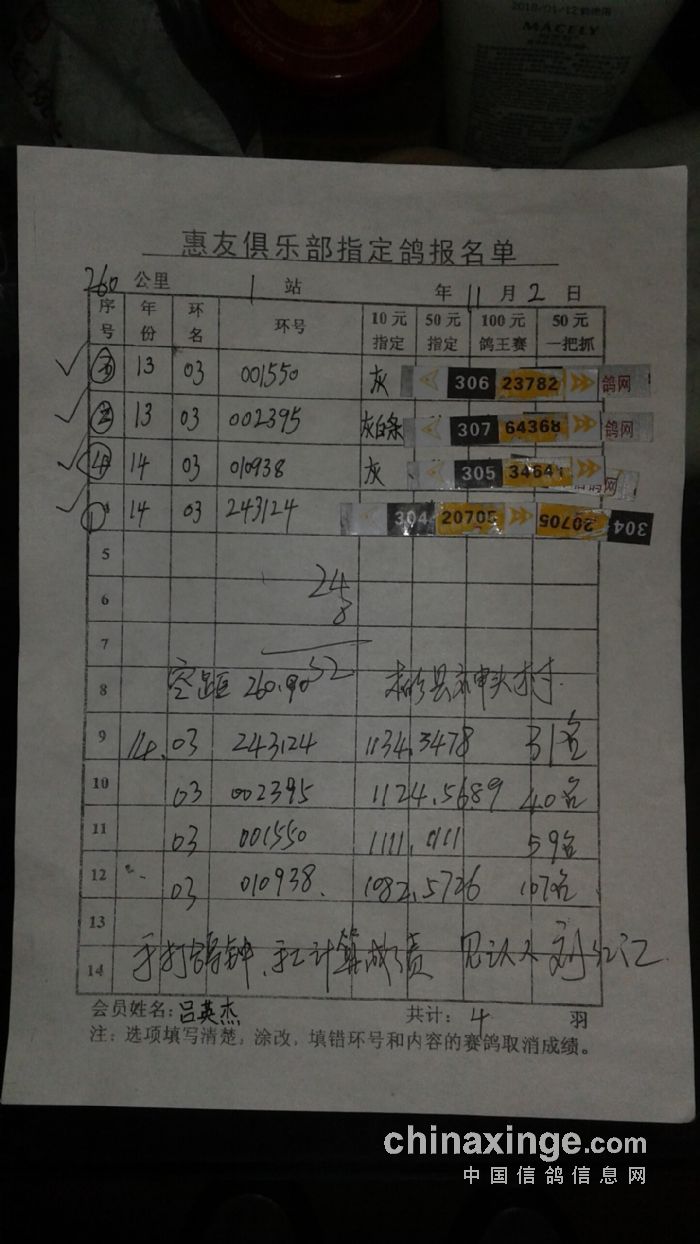 2018/01/12
MACELY
惠友俱乐部指定鸽报名单
260 公里 1 站 年 11 月 2 日
序号 年份 环名 环号 10元指定 50元指定 100元鸽王赛 50元一把抓
13 03 001550 灰 306 23782 鸽网
13 03 002395 灰白条 307 64368 鸽网
14 03 010938 灰 305 34641 鸽网
14 03 243124 304 20705 20705 304
5 24
6 8
7
8 空距 260.90 52
9 14. 03 243124 1134.3478 31名
10 03 002395 1124.5689 40名
11 03 001550 1111.0111 59名
12 03 010938. 1082.5726 107名
13
14 手打鸽钟、手工计算成绩 见认人 刘红江
会员姓名：吕英杰 共计：4 羽
注：选项填写清楚，涂改，填错环号和内容的赛鸽取消成绩。
chinaxinge.com
中国信鸽信息网